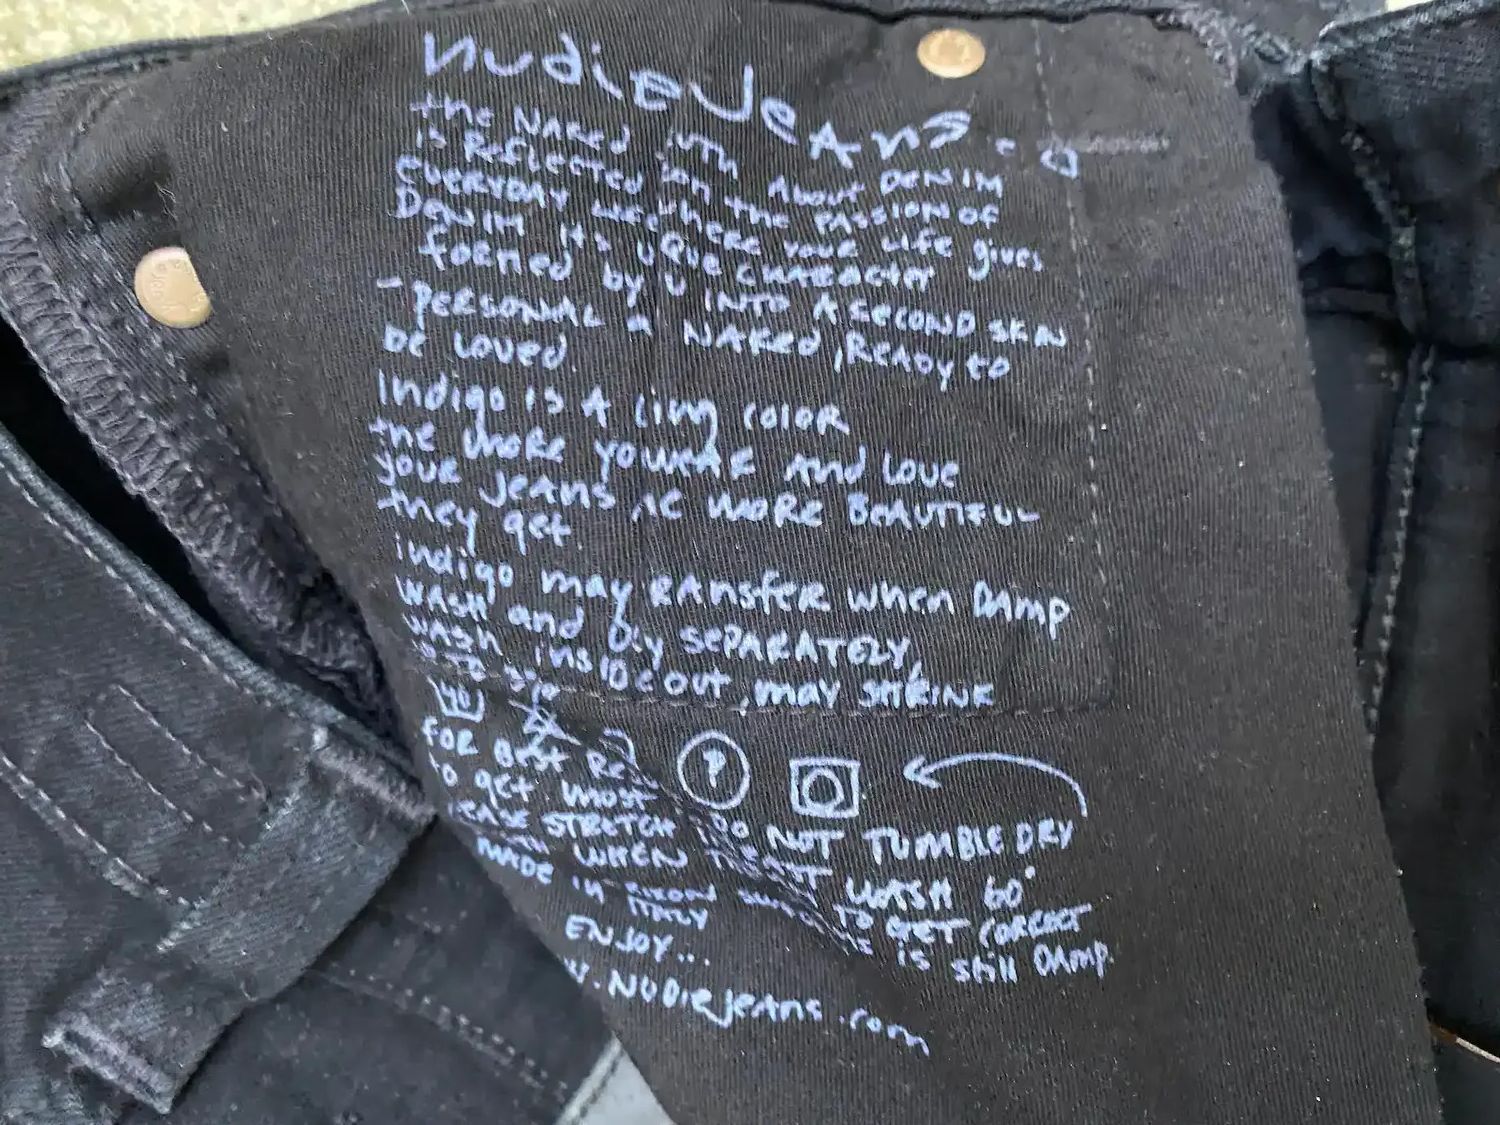 nudieJeans
the NAKED utn About DENIM
is REFLECTED in the PASSION of
EVERYDAY where your LIFE gives
DENIM its uque CHARACTER
formed by U INTO A SECOND SKIN
- PERSONAL a NAKED, READY to
be LOVED
Indigo is A ling color
the more you weaR And LOVE
your JEANS, MORE BEAUTIFUL
they get
indigo may RANSfeR when DAmp
WASH and SEPARATELY,
WASH insIDe OUT, may SHRINK
FOR BEST
to get most DO NOT TUMBLE DRY
STRETCH WASH 60°
WHEN TO GET CORRECT
MADE IN is still DAmp.
ITALY
ENJOY...
.NUDIEJeans.com